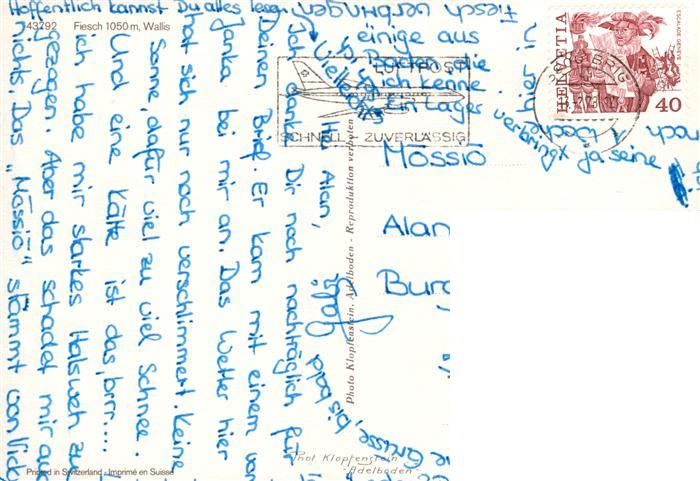 Hoffentlich kannst Du alles lesen.
43792 Fiesch 1050 m, Wallis
Hu Alan,
Ich danke Dir noch nachträglich für
Deinen Brief. Er kam mit einem von
Janka bei mir an. Das Wetter hier
hat sich nur noch verschlimmert. Keine
Sonne, dafür viel zu viel Schnee.
Und eine Kälte ist das, brrr....
ich habe mir starkes Halsweh zu-
gezogen. Aber das schadet mir auch
nichts. Das "Mössiö" stammt von
Vielleicht
Grüsse, bis bald
Fiesch verbringen
einige aus
Baden, die
ich kenne
ein Lager
verbringt ja seine
Mössiö
Alan
LUFTPOST
SCHNELL ZUVERLÄSSIG
3900 BRIG
HELVETIA
ESCALADE GENEVE
40
Photo Klopfenstein, Adelboden - Reproduktion verboten
Phot. Klopfenstein
Adelboden
Printed in Switzerland - Imprimé en Suisse